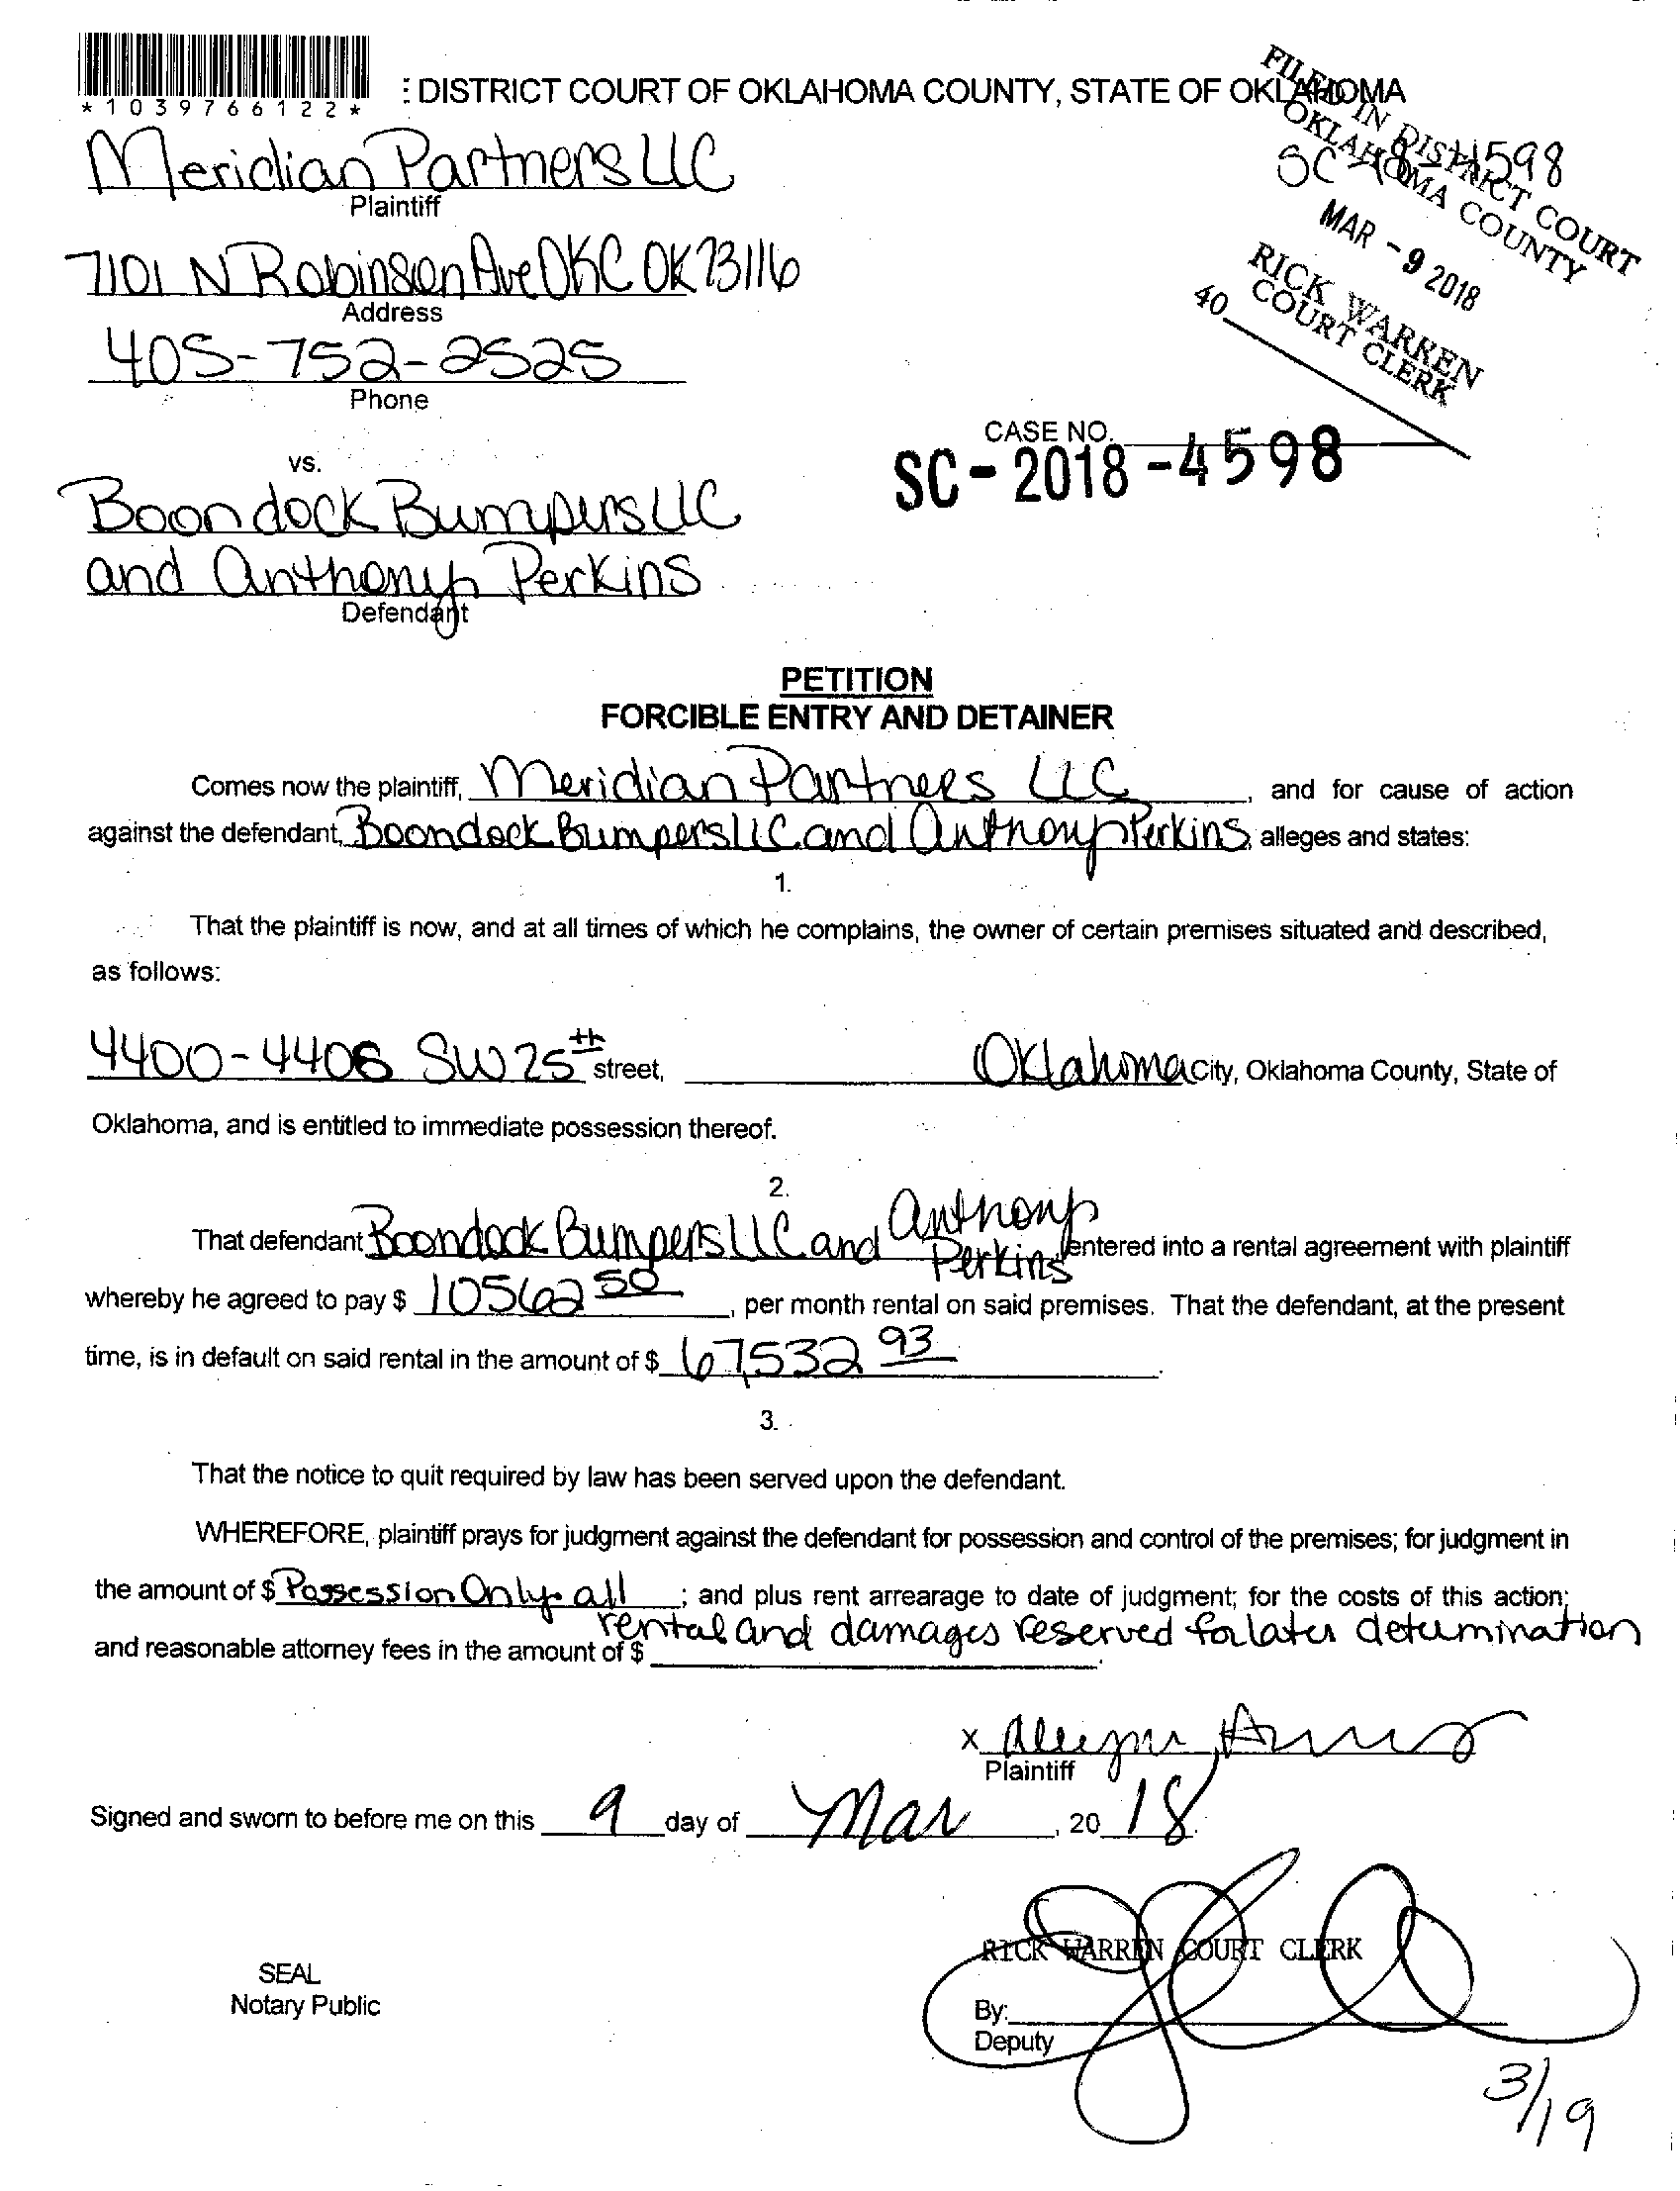 *1039766122*
: DISTRICT COURT OF OKLAHOMA COUNTY, STATE OF OKLAHOMA
FILED IN DISTRICT COURT
OKLAHOMA COUNTY
SC-18-4598
MAR - 9 2018
RICK WARREN
COURT CLERK
40
Meridian Partners LLC
Plaintiff
7101 N Robinson Ave OKC OK 73116
Address
405-752-2525
Phone
CASE NO.
SC-2018-4598
vs.
Boondock Bumpers LLC
and Anthony Perkins
Defendant
PETITION
FORCIBLE ENTRY AND DETAINER
Comes now the plaintiff, Meridian Partners LLC, and for cause of action
against the defendant, Boondock Bumpers LLC and Anthony Perkins, alleges and states:
1.
That the plaintiff is now, and at all times of which he complains, the owner of certain premises situated and described,
as follows:
4400-4406 SW 25th street, Oklahoma City, Oklahoma County, State of
Oklahoma, and is entitled to immediate possession thereof.
2.
That defendant Boondock Bumpers LLC and Anthony Perkins entered into a rental agreement with plaintiff
whereby he agreed to pay $ 10562 50, per month rental on said premises. That the defendant, at the present
time, is in default on said rental in the amount of $ 67,532 93.
3.
That the notice to quit required by law has been served upon the defendant.
WHEREFORE, plaintiff prays for judgment against the defendant for possession and control of the premises; for judgment in
the amount of $ Possession Only. all; and plus rent arrearage to date of judgment; for the costs of this action;
rental and damages reserved for later determination
and reasonable attorney fees in the amount of $
X
Plaintiff
Signed and sworn to before me on this 9 day of Mar, 20 18.
RICK WARREN COURT CLERK
SEAL
Notary Public
By:
Deputy
3/19